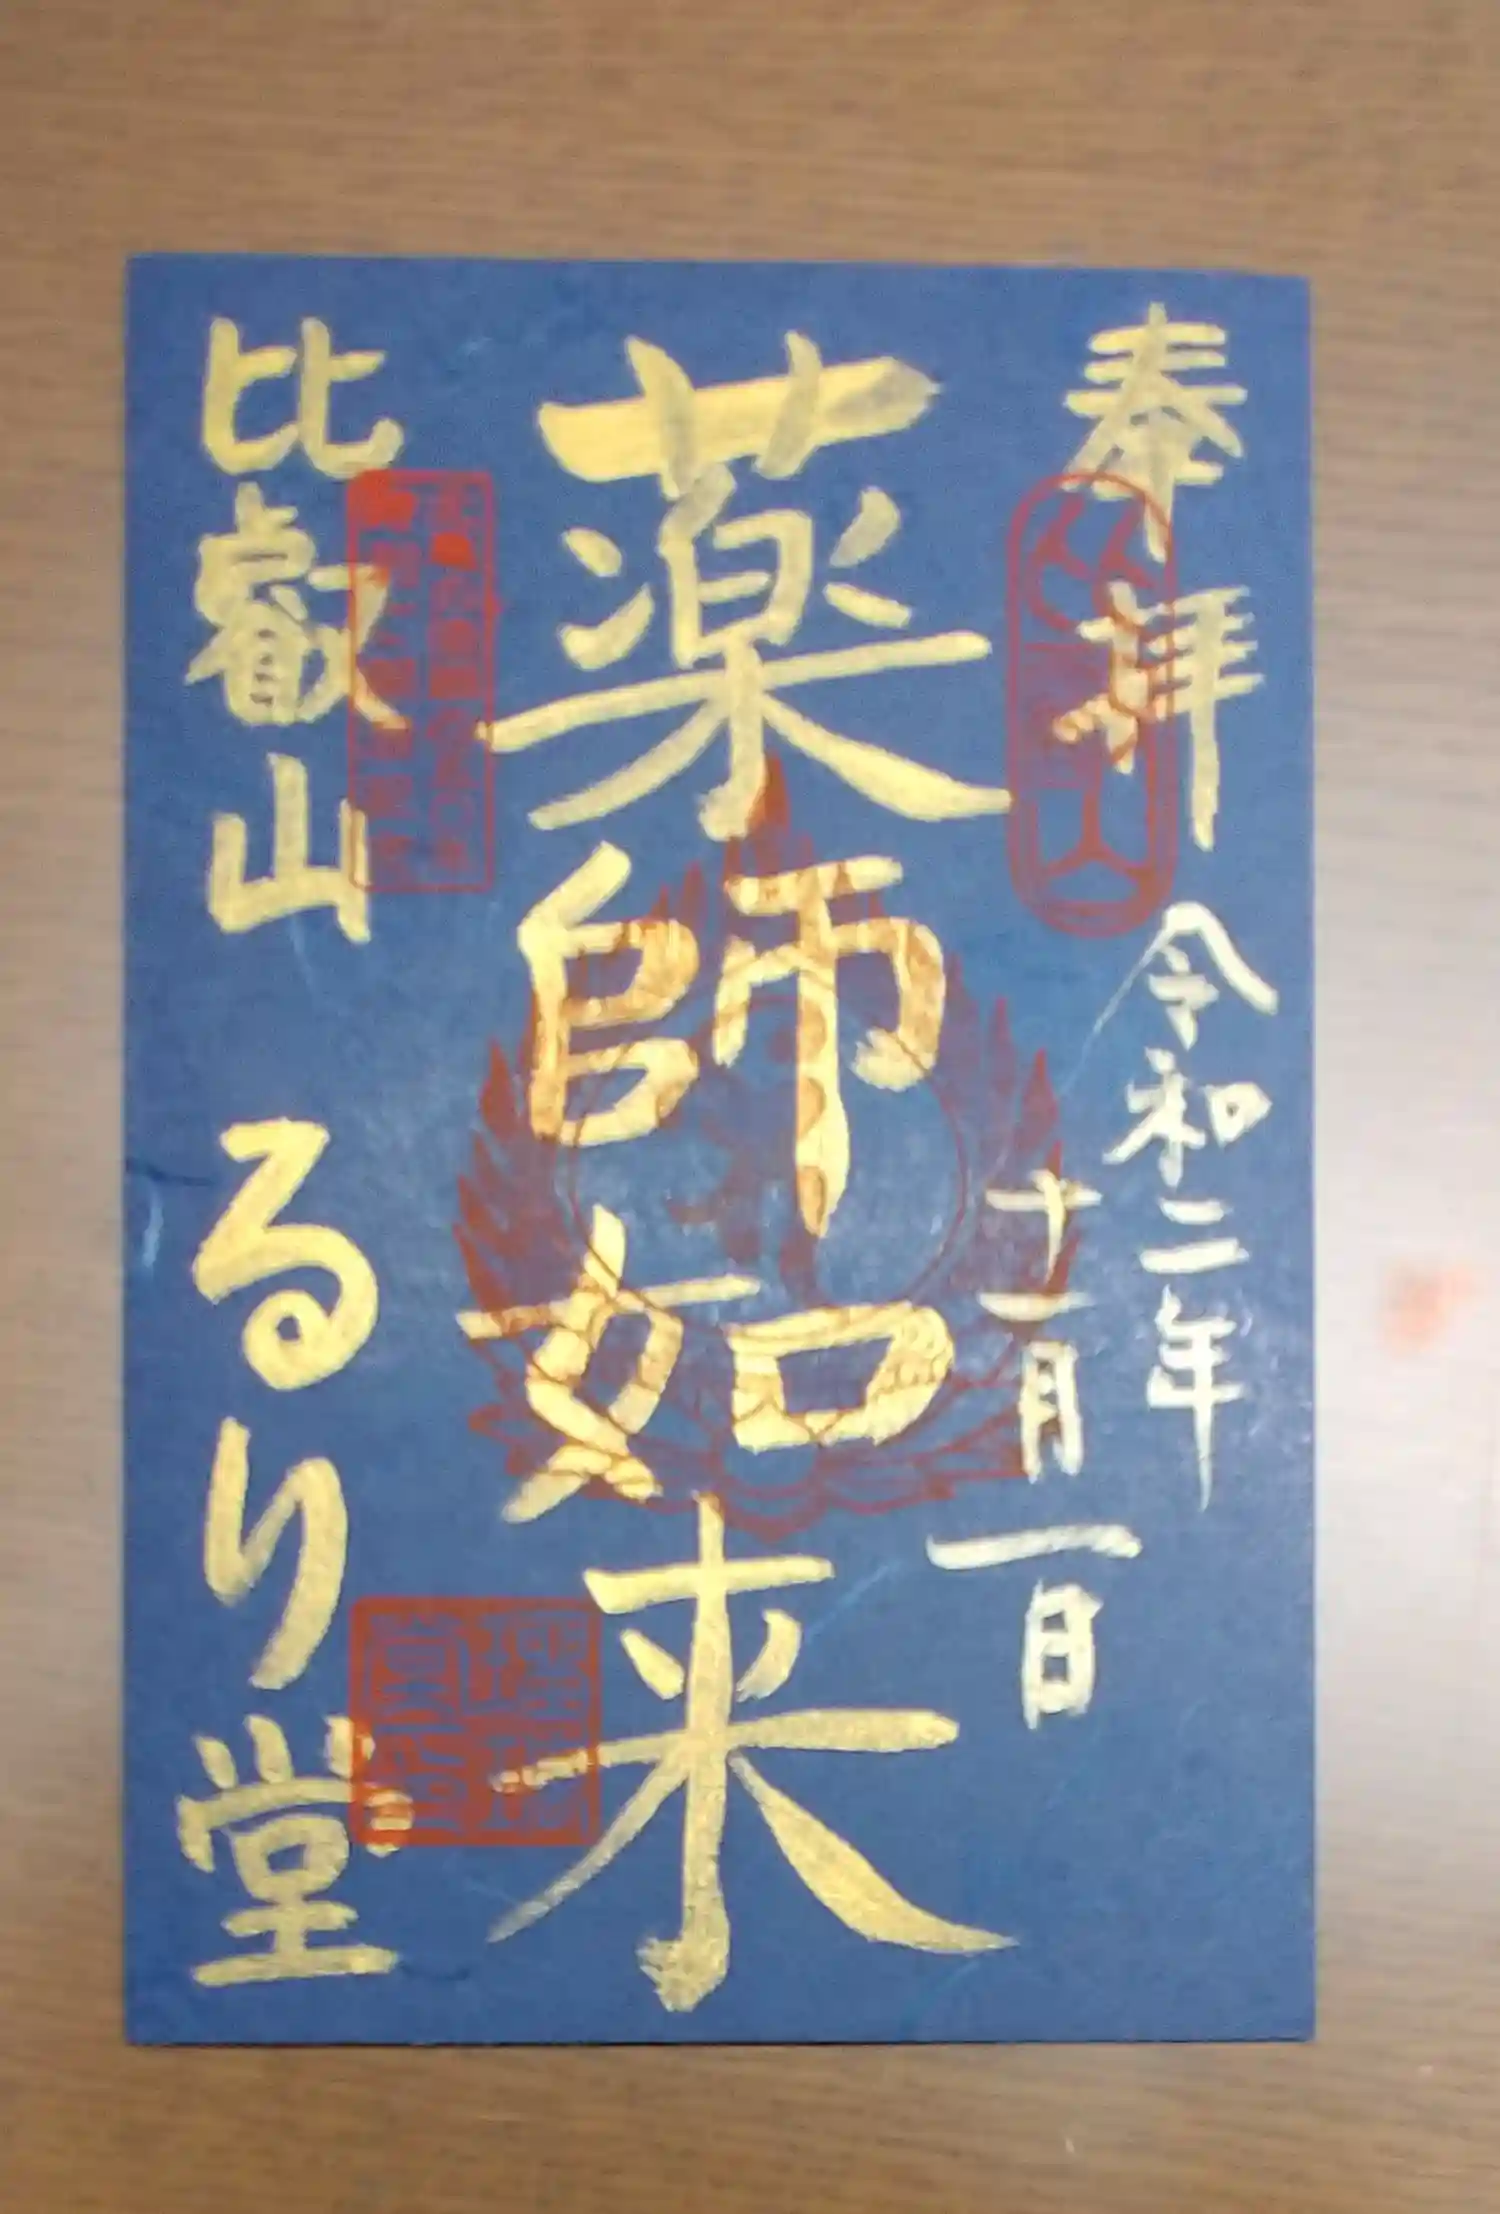 奉拝 令和二年
十一月一日
薬師如来
比叡山 るり堂